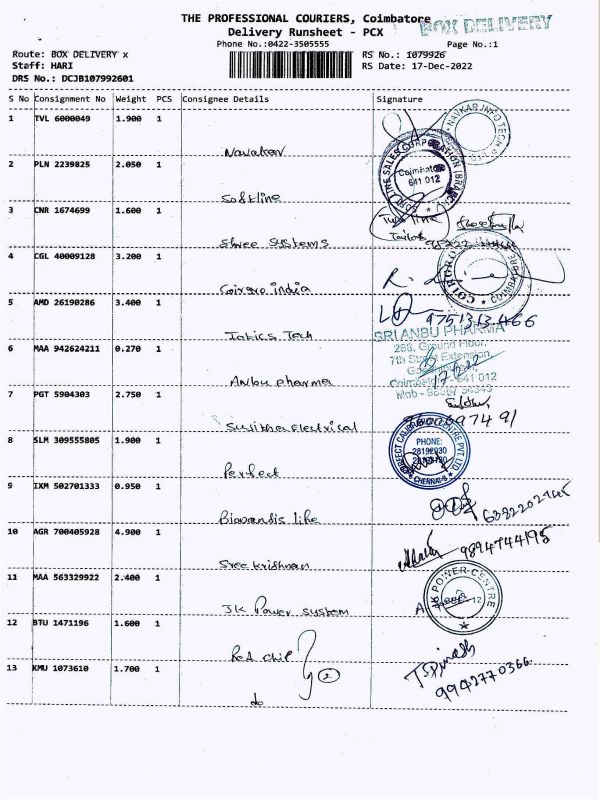 THE PROFESSIONAL COURIERS, Coimbatore
BOX DELIVERY
Delivery Runsheet - PCX
Phone No.:0422-3505555
Page No.:1
Route: BOX DELIVERY x
RS No.: 1079926
Staff: HARI
RS Date: 17-Dec-2022
DRS No.: DCJB107992601
S No Consignment No Weight PCS Consignee Details Signature
1 TVL 6000049 1.900 1
NAVKAR INFO TECH
Navakar
2 PLN 2239825 2.050 1
Coimbatore
641 012
Softline
3 CNR 1674699 1.600 1
Shree Systems
4 CGL 40009128 3.200 1
Coirgro india
5 AMD 26190286 3.400 1
9751313466
Tobics Tech
SRI ANBU PHARMA
6 MAA 942624211 0.270 1
266, Ground Floor,
7th Street Extension,
17/12/22
Anbu pharma
7 PGT 5904303 2.750 1
Suribha Electrical
8 SLM 309555805 1.900 1
PHONE:
CHENNAI-8
Perfect
9 IXM 502701333 0.950 1
Biovandis like
10 AGR 700405928 4.900 1
9894744195
Sree krishnan
11 MAA 563329922 2.400 1
JK POWER CENTRE
JK Power system
12 BTU 1471196 1.600 1
Red chil
2
13 KMU 1073610 1.700 1
9942770366
do